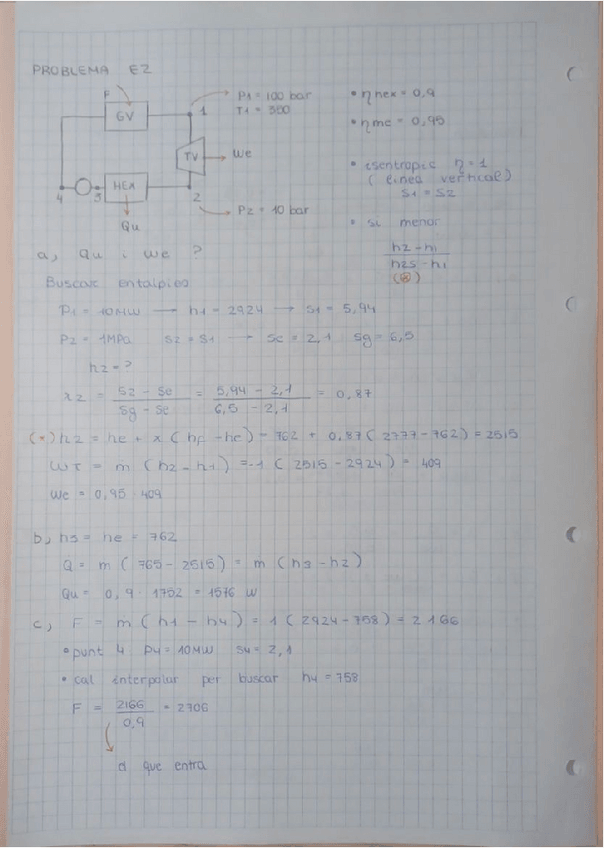 PROBLEMA E2
F
GV
1
P1 = 100 bar
T1 = 350
TV
We
HEX
4
3
2
P2 = 10 bar
Qu
• ηhex = 0,9
• ηme = 0,95
• esentropic η = 1
( linea vertical)
S1 = S2
• si menor
h2 - h1
h2s - h1
(*)
a, Qu , We ?
Buscar entalpies
P1 = 10MW → h1 = 2924 → S1 = 5,94
P2 = 1MPa S2 = S1 → Se = 2,1 Sg = 6,5
h2 = ?
x2 = S2 - Se / Sg - Se = 5,94 - 2,1 / 6,5 - 2,1 = 0,87
(*) h2 = he + x ( hf - he ) = 762 + 0,87 ( 2777 - 762 ) = 2515
WT = m ( h2 - h1 ) = -1 ( 2515 - 2924 ) = 409
We = 0,95 · 409
b, h3 = he = 762
Q = m ( 765 - 2515 ) = m ( h3 - h2 )
Qu = 0,9 · 1752 = 1576 W
c, F = m ( h1 - h4 ) = 1 ( 2924 - 758 ) = 2166
• punt 4 P4 = 10MW S4 = 2,1
• cal interpolar per buscar h4 = 758
F = 2166 / 0,9 = 2706
d que entra